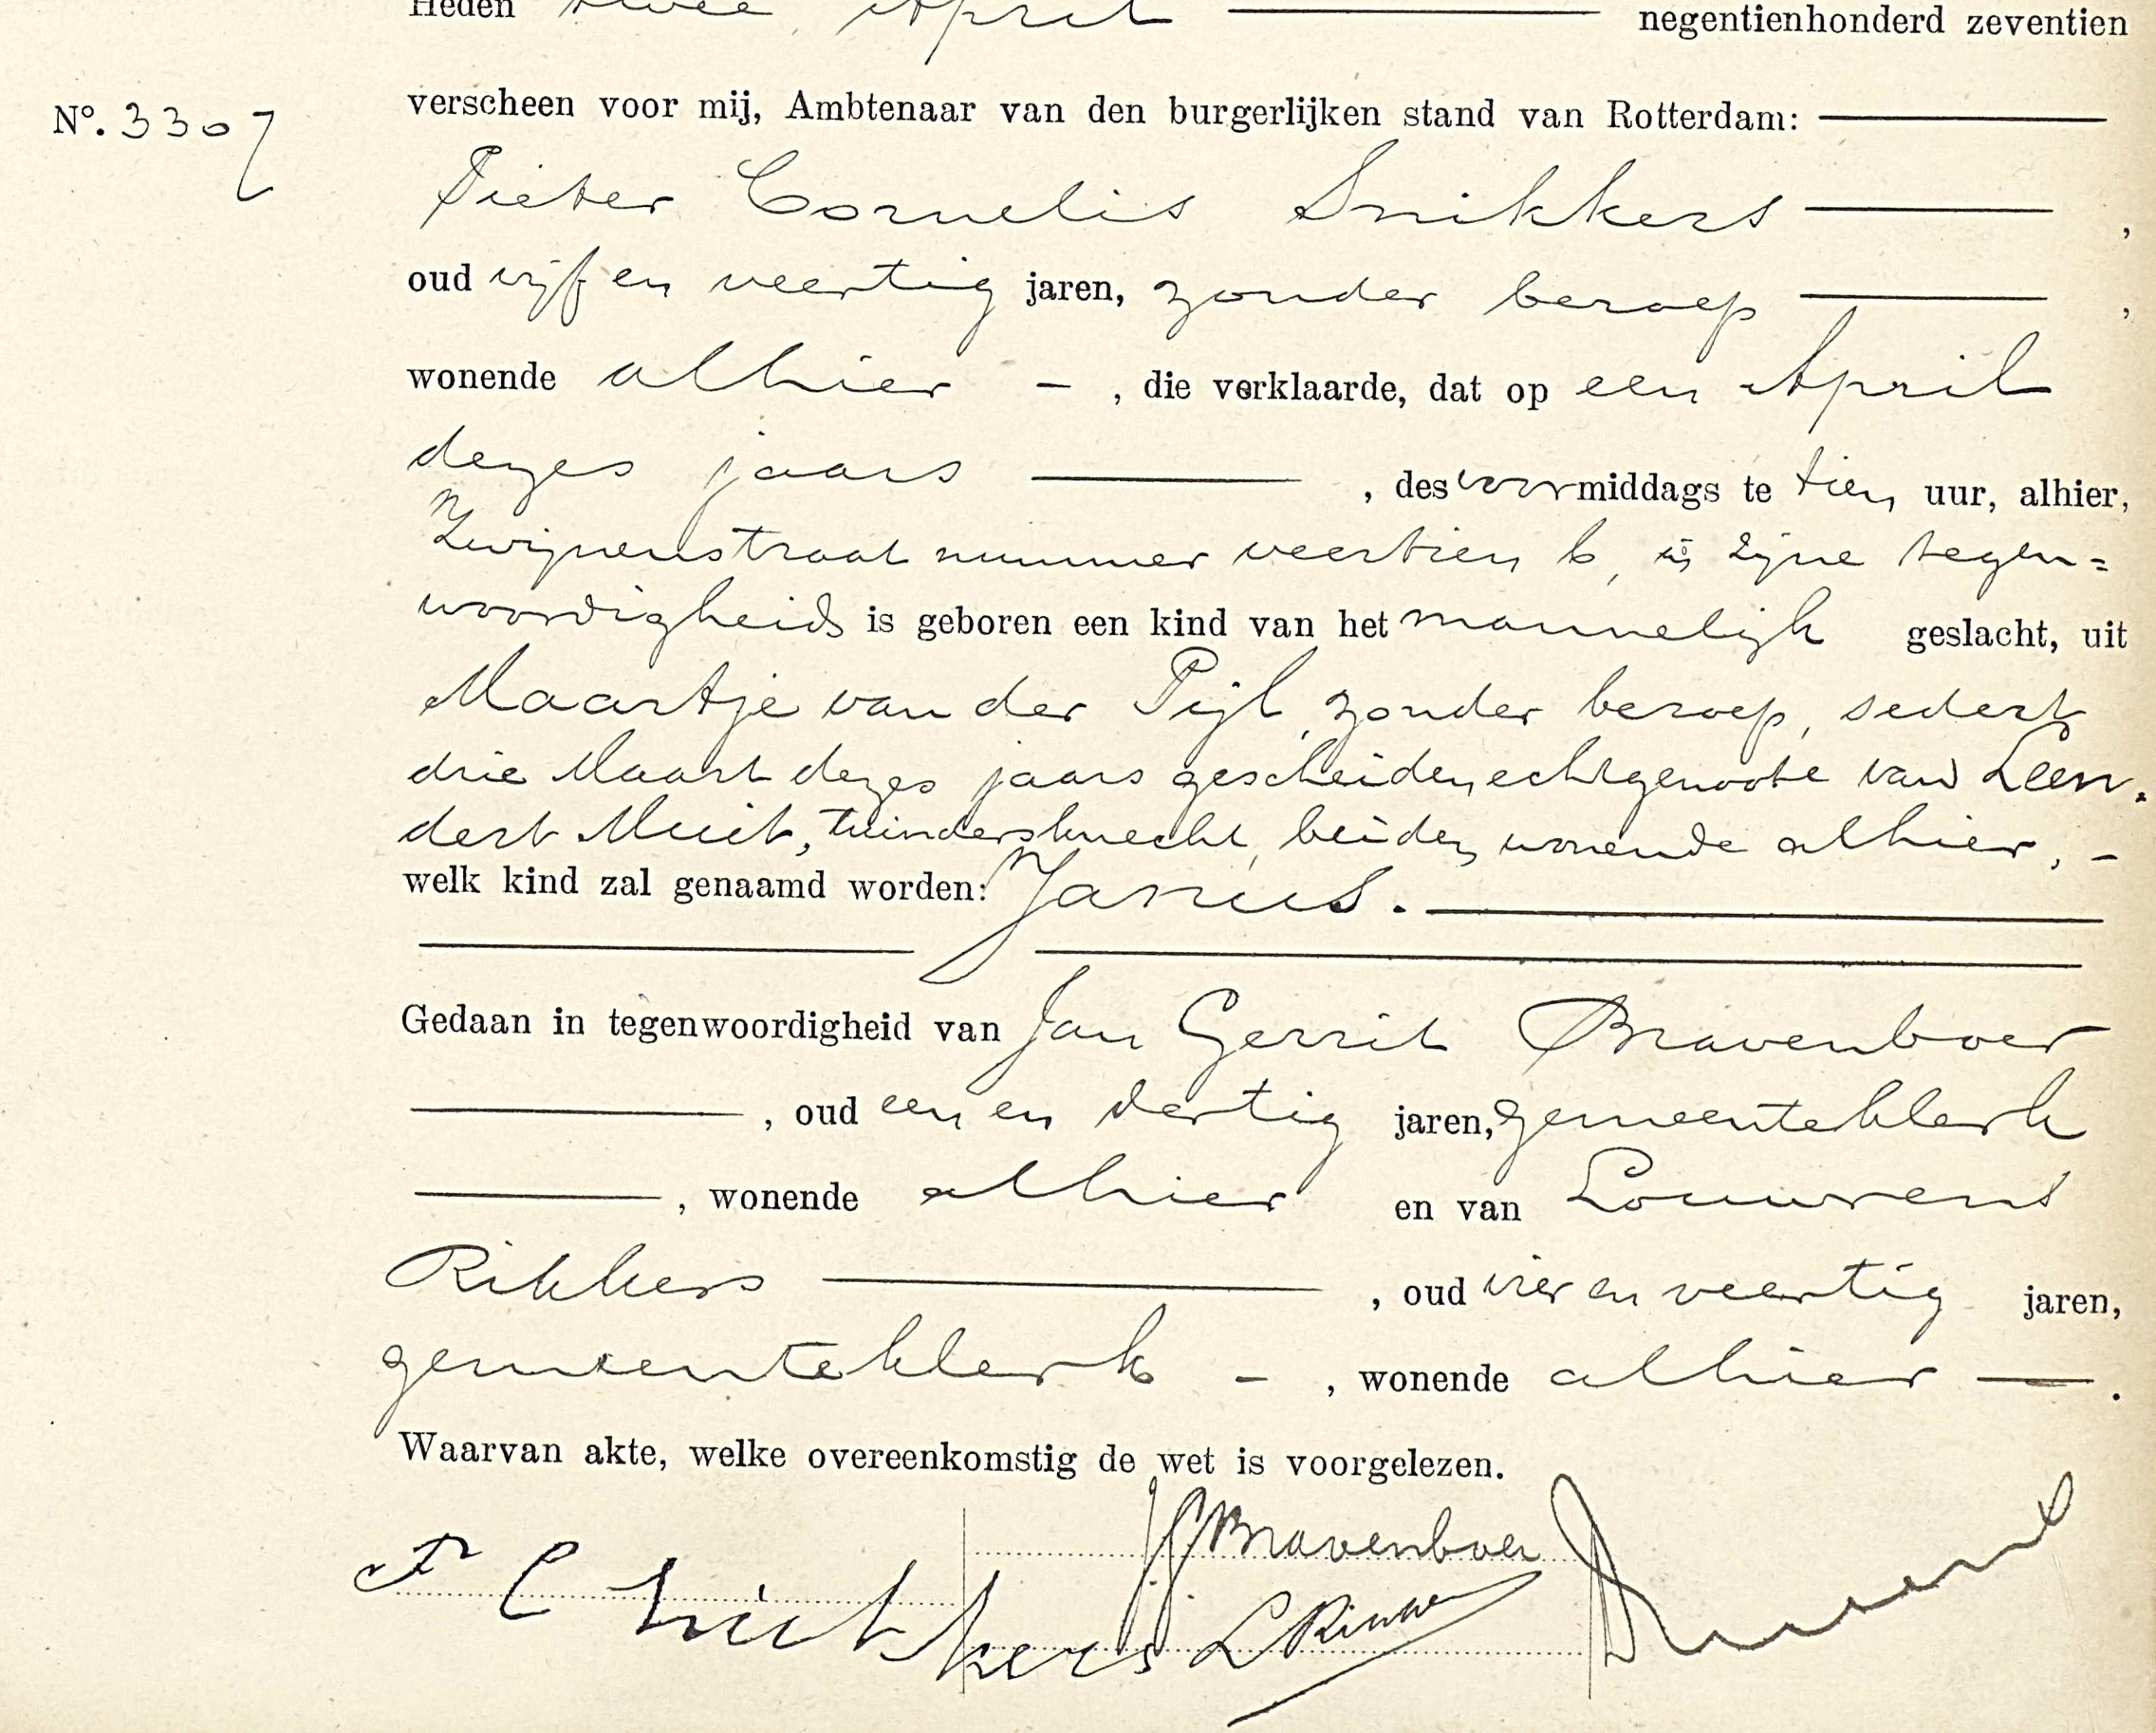 Heden twee April negentienhonderd zeventien
Nº. 3307
verscheen voor mij, Ambtenaar van den burgerlijken stand van Rotterdam:
Pieter Cornelis Snikkers ,
oud vijf en veertig jaren, zonder beroep ,
wonende alhier – , die verklaarde, dat op een April
dezes jaars , des voormiddags te tien uur, alhier,
Zwijnenstraat nummer veertien b, in zijne tegen=
woordigheid is geboren een kind van het mannelijk geslacht, uit
Maartje van der Pijl, zonder beroep, sedert
drie Maart dezes jaars gescheiden echtgenoote van Leen-
dert Muit, tuindersknecht, beiden wonende alhier, –
welk kind zal genaamd worden: Janus.
Gedaan in tegenwoordigheid van Jan Gerrit Bravenboer
, oud een en dertig jaren, gemeenteklerk
, wonende alhier en van Louwrens
Rikkers , oud vier en veertig jaren,
gemeenteklerk – , wonende alhier — .
Waarvan akte, welke overeenkomstig de wet is voorgelezen.
P C Snikkers
JG Bravenboer
L Rikkers